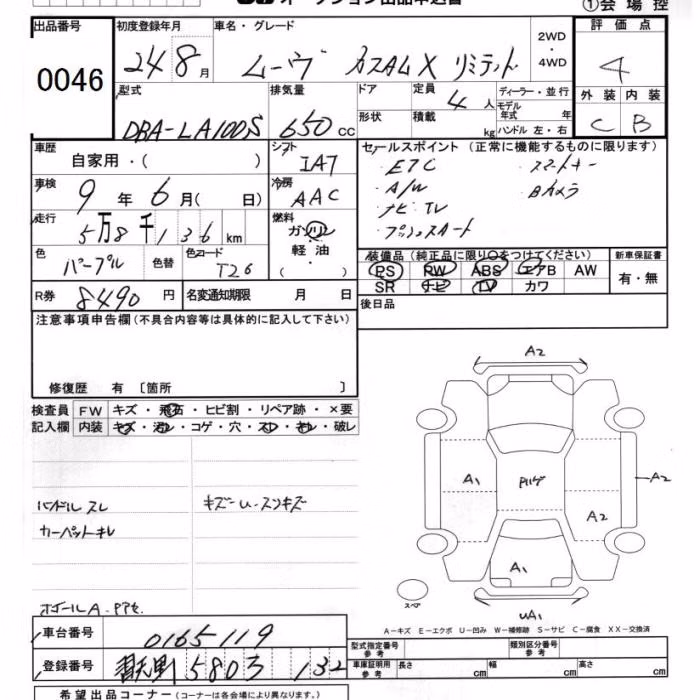 オークション出品申込書
①会場控
出品番号
0046
初度登録年月
24 8月
車名・グレード
ムーヴ カスタムX リミテッド
2WD
・
4WD
評価点
4
外装 内装
C B
型式
DBA-LA100S
排気量
650 cc
ドア
形状
定員
4 人
積載
kg
ディーラー・並行
モデル年式 年
ハンドル 左・右
車歴
自家用・( )
シフト
IA7
セールスポイント (正常に機能するものに限ります)
・ETC
・スマートキー
・A/W
・Bカメラ
・ナビ TV
・プッシュスタート
車検
9 年 6 月( 日)
冷房
AAC
走行
5万8千136 km
燃料
ガソリン
・
軽油・
( )
色
パープル
色替
色コード
T26
装備品 (純正品に限り○をつけてください)
PS PW ABS エアB AW
SR ナビ TV カワ
新車保証書
有・無
R券
8490 円
名変通知期限 月 日
後日品
注意事項申告欄 (不具合内容等は具体的に記入して下さい)
修復歴 有 〔箇所 〕
検査員記入欄
FW キズ・飛石・ヒビ割・リペア跡・×要
内装 キズ・汚れ・コゲ・穴・スレ・キレ・破レ
ハンドル スレ
カーペットキレ
キズーU・スンキズ
A2
A1
A2
A2
A1
UA1
スペア
A-キズ E-エクボ U-凹み W-補修跡 S-サビ C-腐食 XX-交換済
車台番号
0165119
登録番号
5803 132
型式指定番号
参考
類別区分番号
参考
車庫証明用
参考
長さ cm
幅 cm
高さ cm
希望出品コーナー (コーナーは各会場により異なります。)